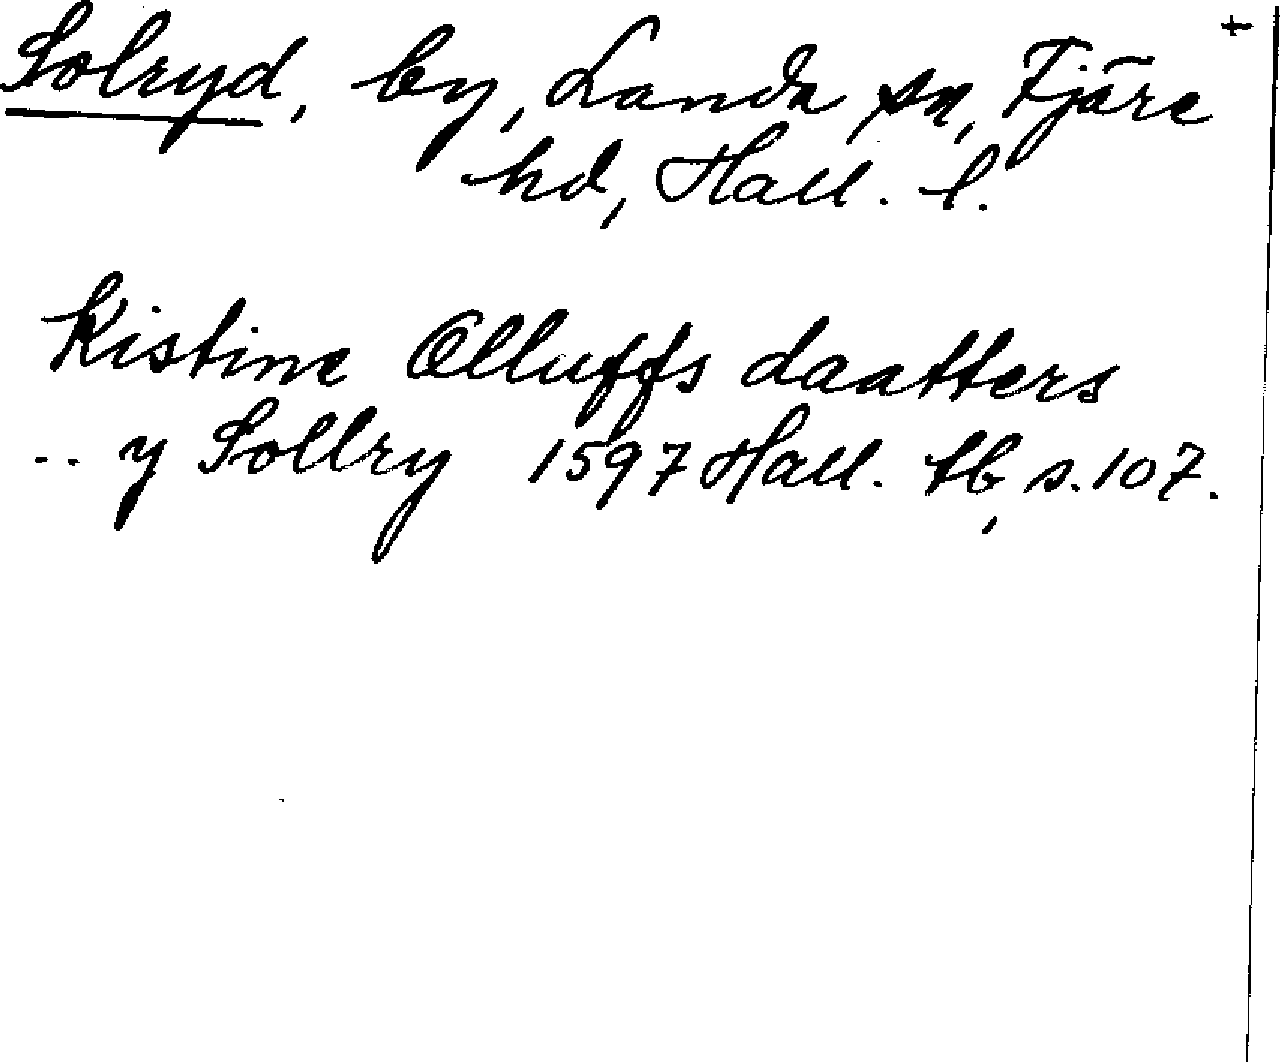 +
Solryd, by, Landa sn, Fjäre
hd, Hall. l.
Kistine Olluffs daatters
.. y Sollry 1597 Hall. tb, s. 107.